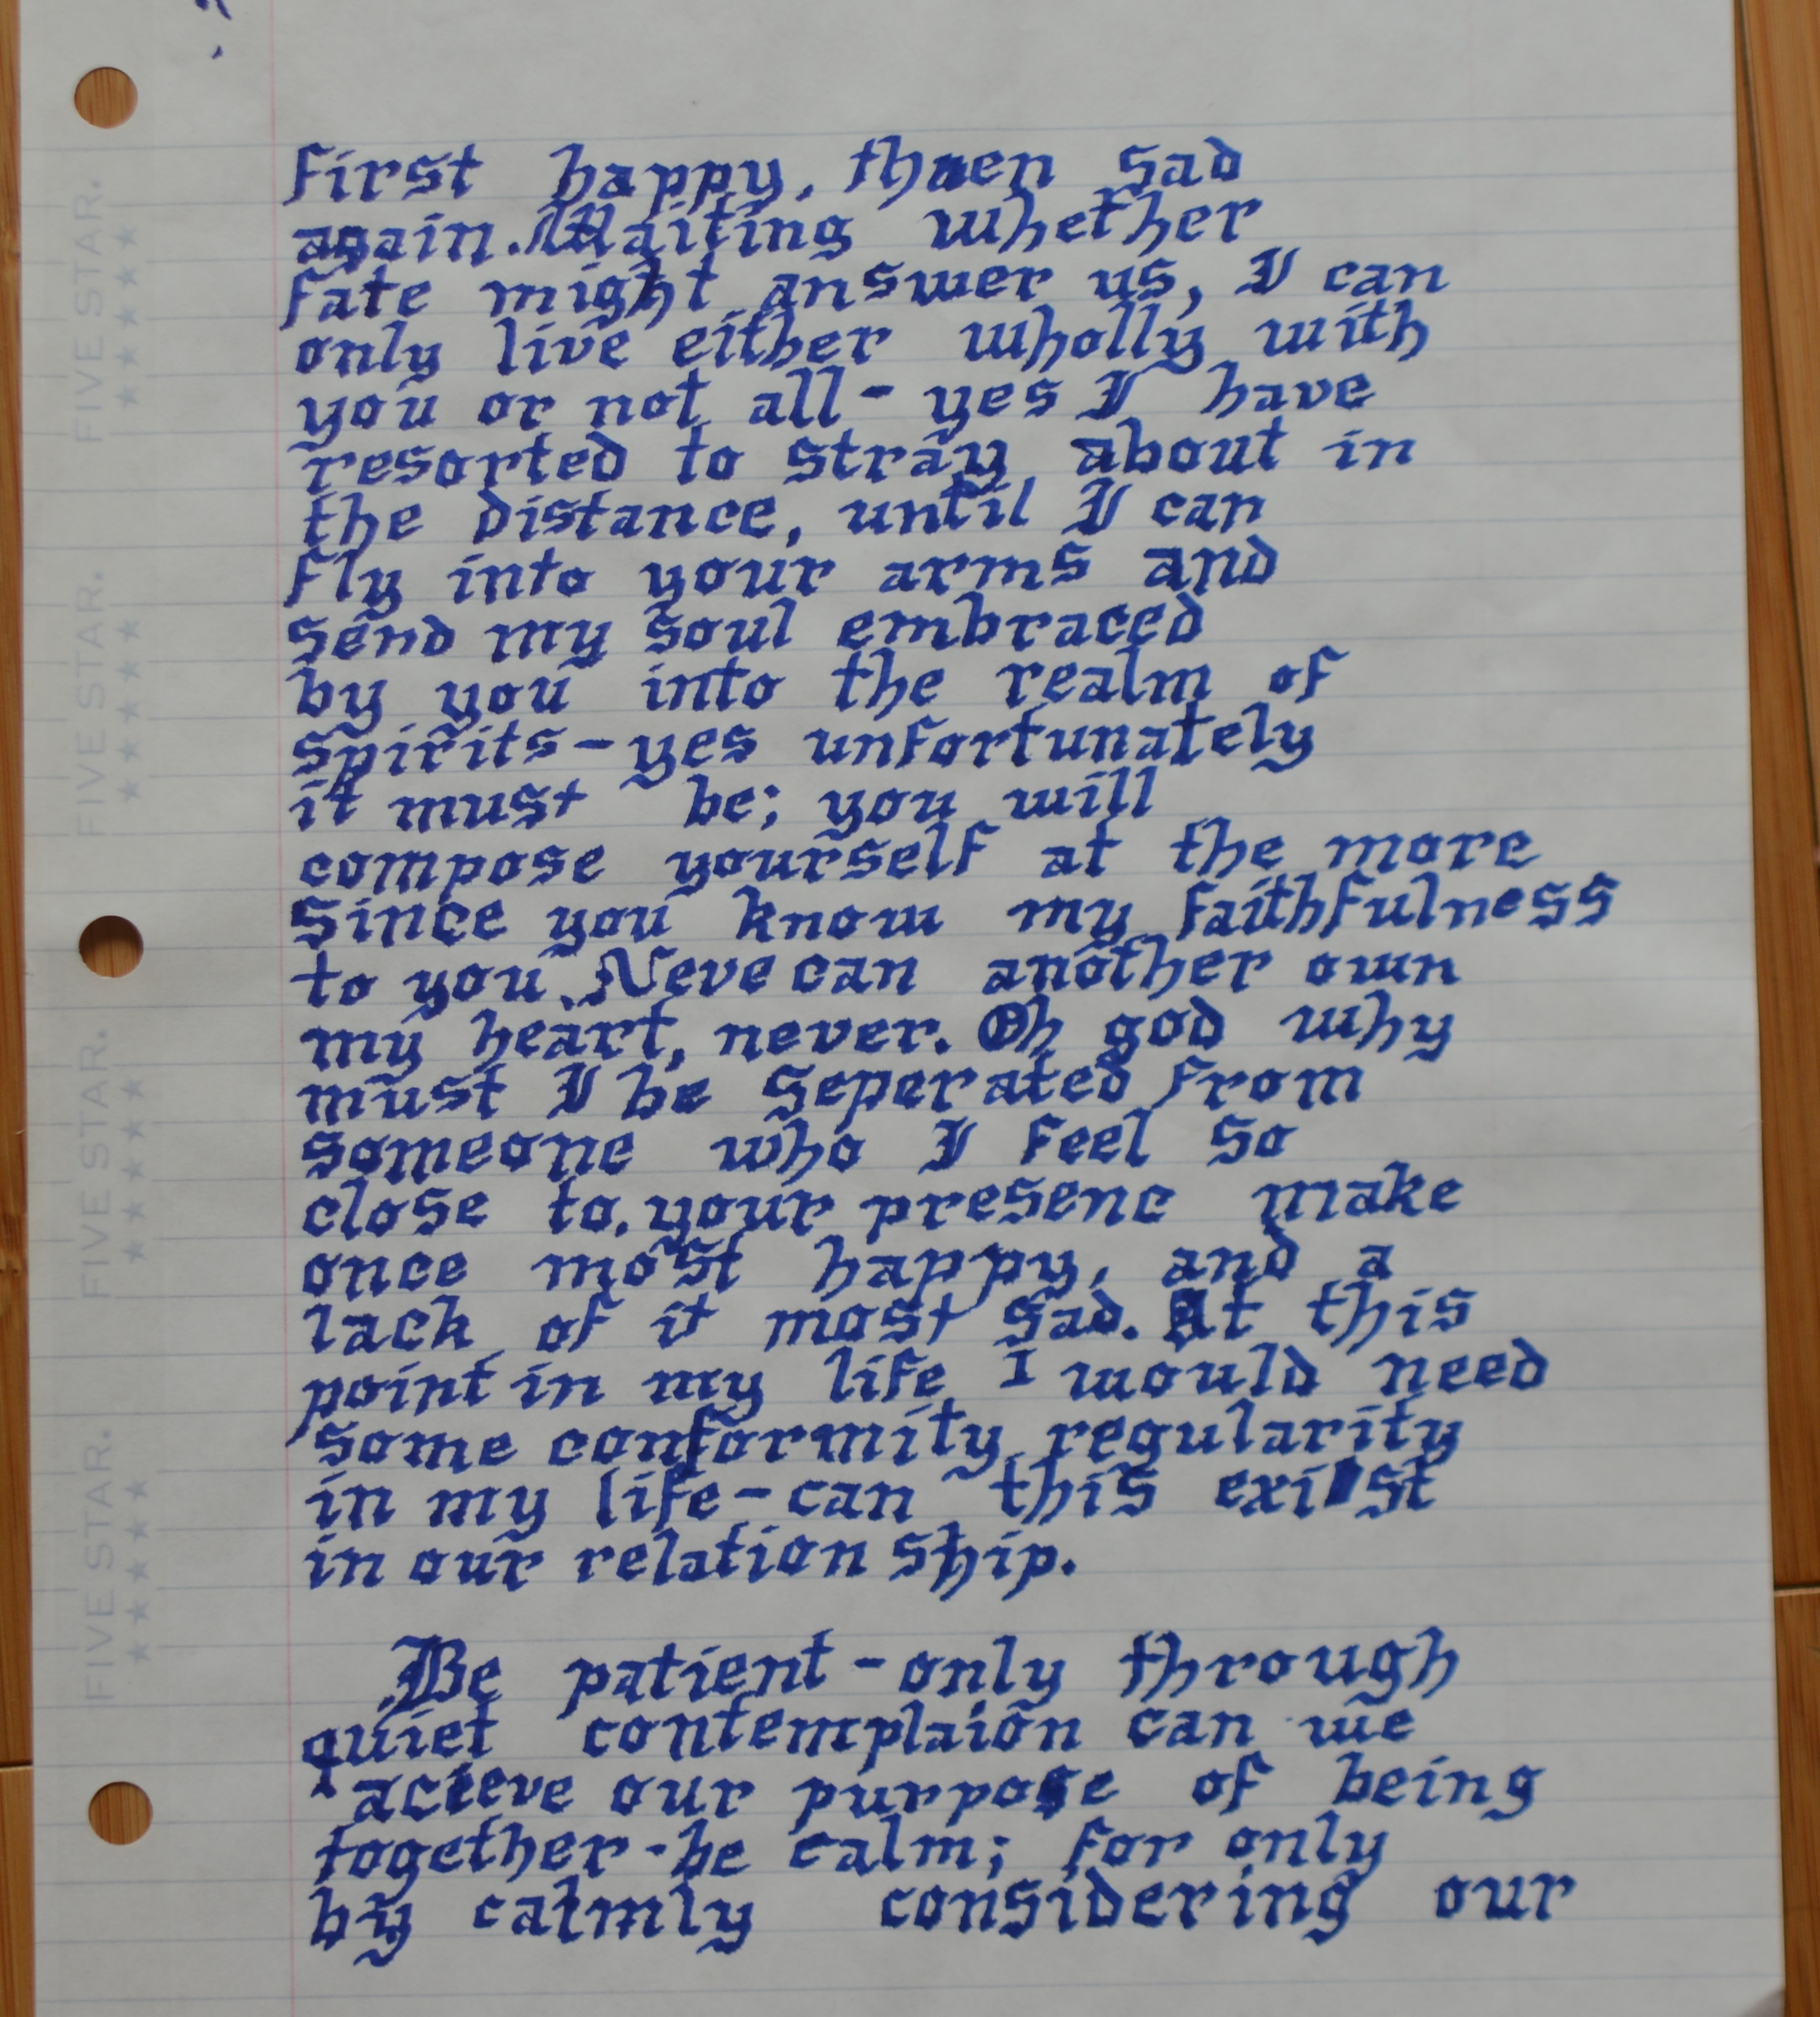 First happy, then sad
again. Waiting whether
fate might answer us, I can
only live either wholly with
you or not all - yes I have
resorted to stray about in
the distance, until I can
fly into your arms and
send my soul embraced
by you into the realm of
spirits - yes unfortunately
it must be; you will
compose yourself at the more
since you know my faithfulness
to you. Neve can another own
my heart, never. Oh god why
must I be seperated from
someone who I feel so
close to. your presenc make
once most happy, and a
lack of it most sad. At this
point in my life I would need
some conformity regularity
in my life - can this exist
in our relation ship.
Be patient - only through
quiet contemplaion can we
acieve our purpose of being
together - be calm; for only
by calmly considering our
FIVE STAR.
FIVE STAR.
FIVE STAR.
FIVE STAR.